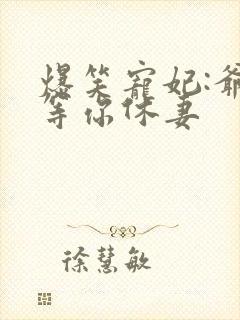 爆笑寵妃:爺
等你休妻
徐慧敏